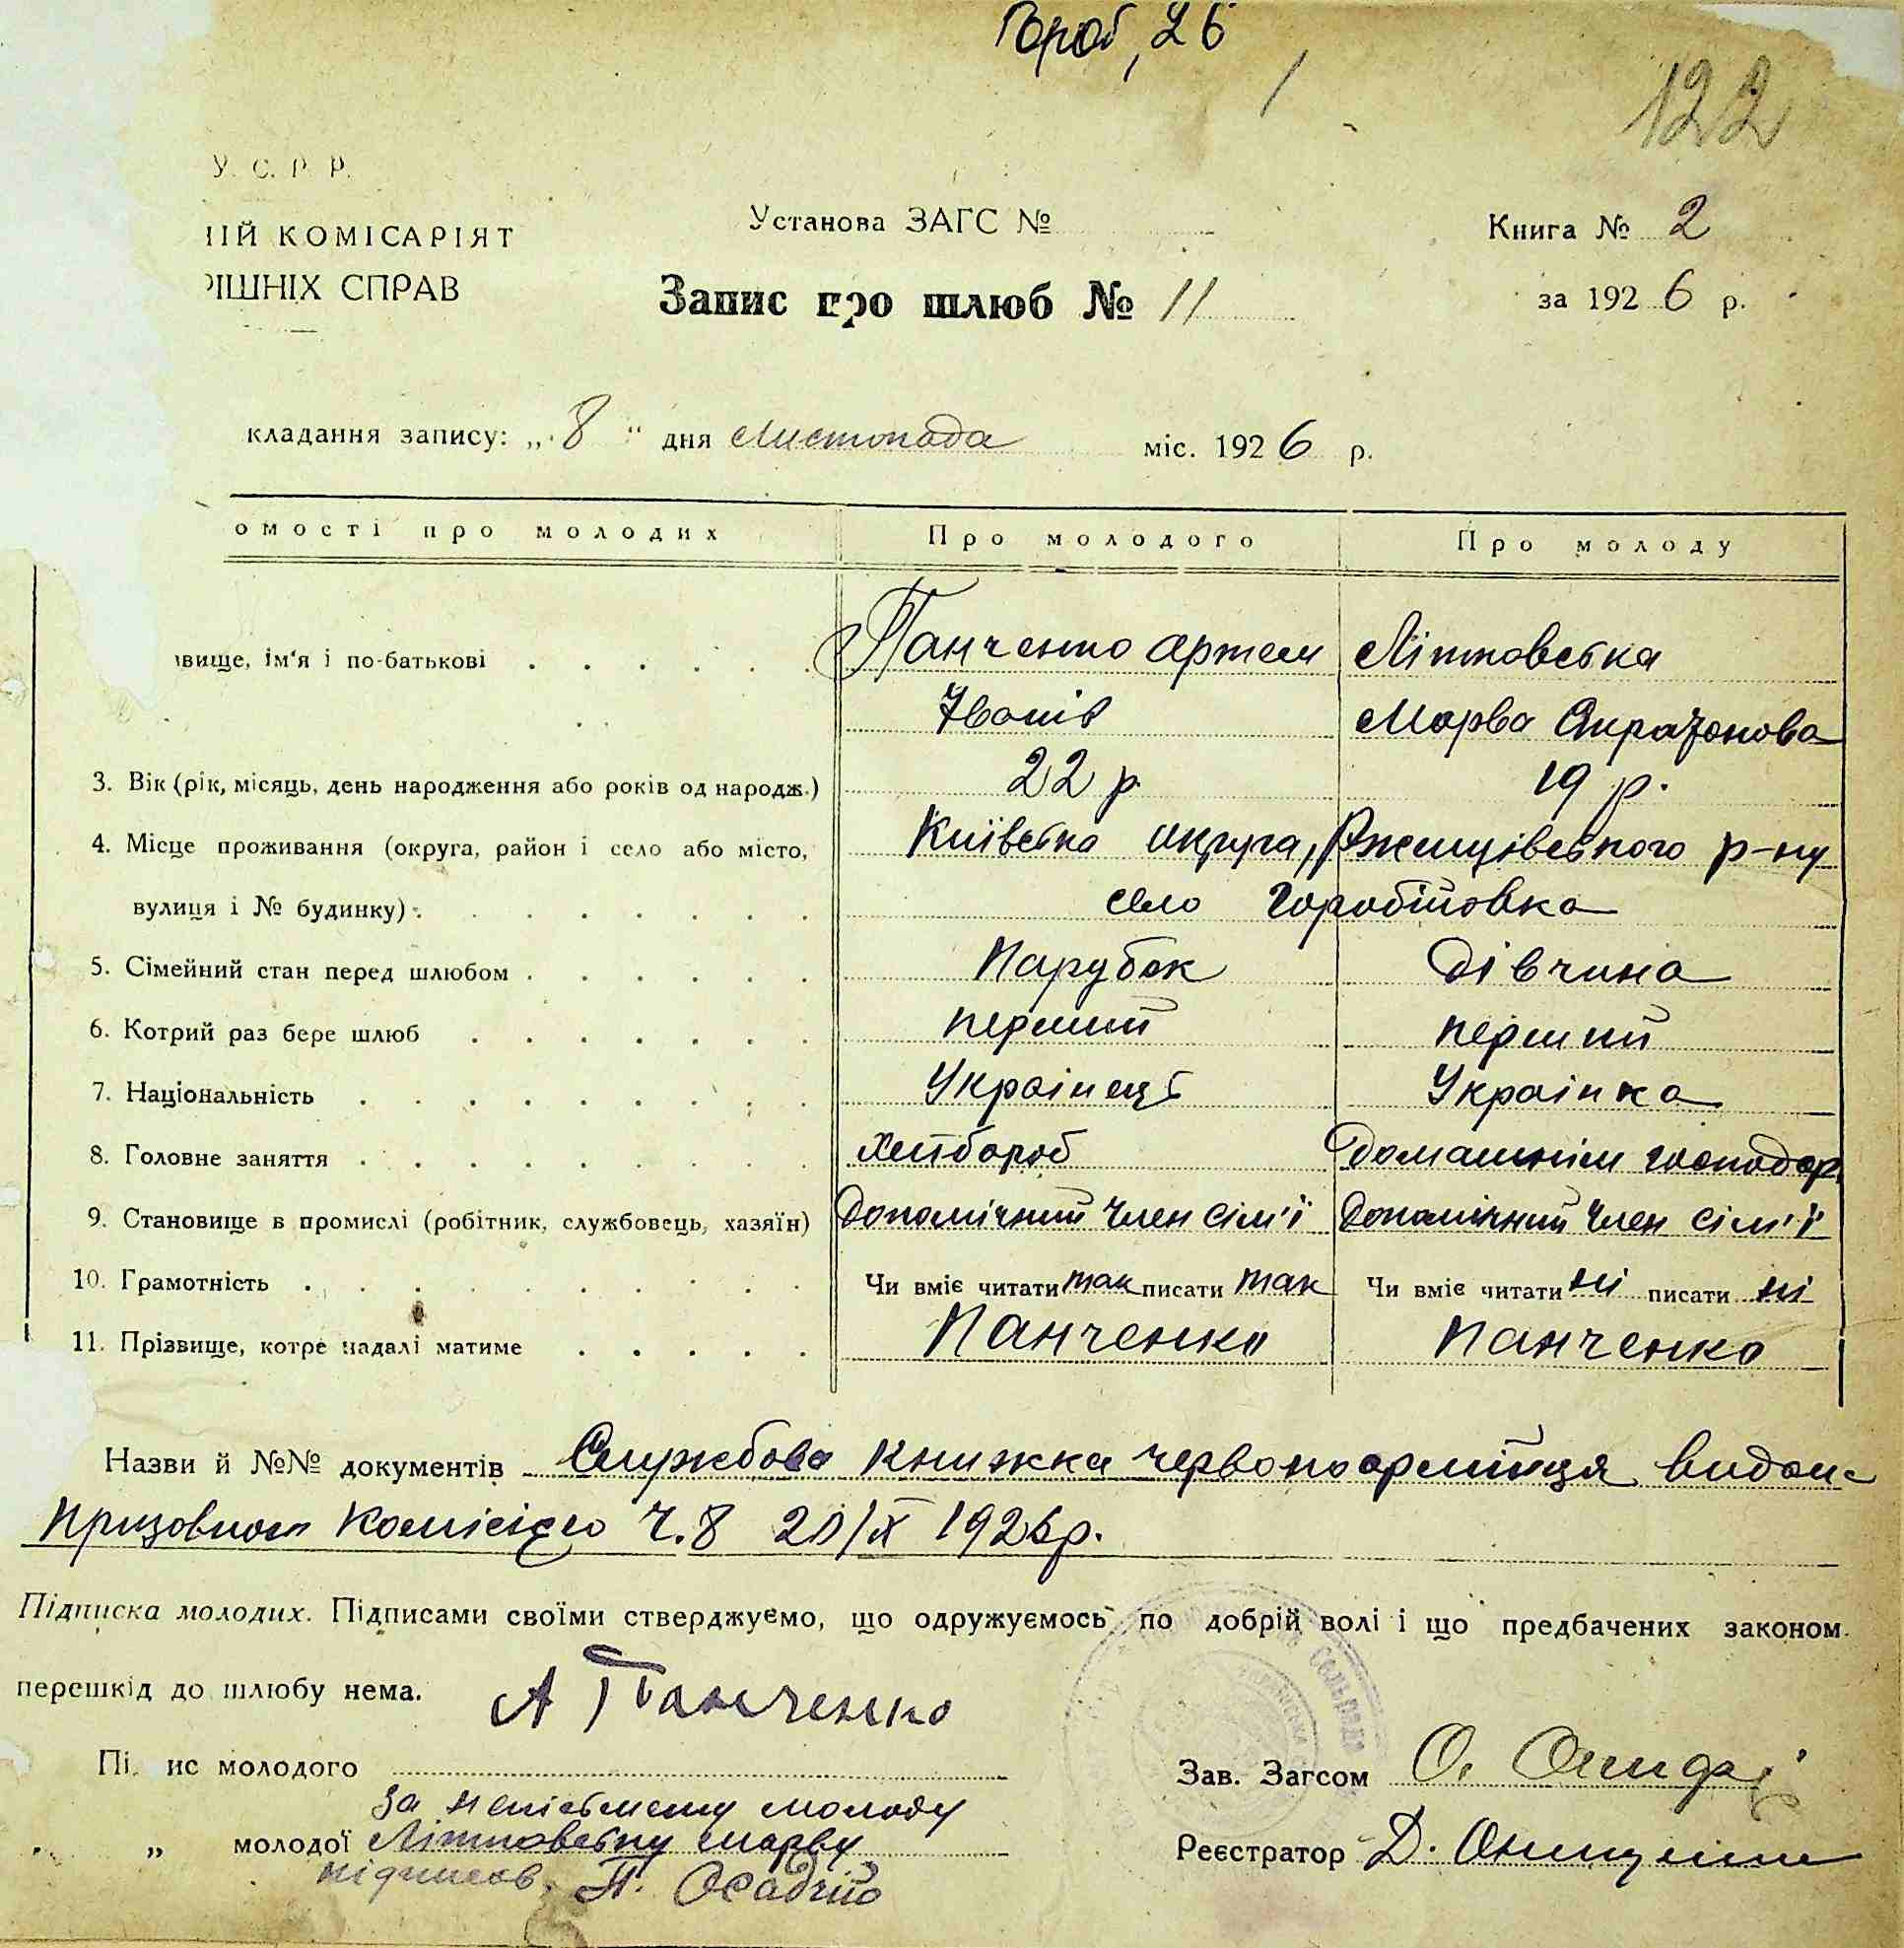 Гороб, 26
122
У. С. Р. Р.
ІЙ КОМІСАРІЯТ
РІШНІХ СПРАВ
Установа ЗАГС №
Книга № 2
Запис про шлюб № 11
за 1926 р.
кладання запису: „8“ дня Листопада міс. 1926 р.
омості про молодих Про молодого Про молоду
звище, ім'я і по-батькові . . . . . . Панченко Артем Літковська
Іванів Марва
3. Вік (рік, місяць, день народження або років од народж.) 22 р. 19 р.
4. Місце проживання (округа, район і село або місто, Київська округа, Ржищівського р-ну
вулиця і № будинку) . . . . . . . . село Горобіївка
5. Сімейний стан перед шлюбом . . . . . . Парубок Дівчина
6. Котрий раз бере шлюб . . . . . . . перший перший
7. Національність . . . . . . . . . Українець Українка
8. Головне заняття . . . . . . . . . Хлібороб Домашнім господар.
9. Становище в промислі (робітник, службовець, хазяїн) Допомічний член сім'ї Допомічний член сім'ї
10. Грамотність . . . . . . . . . Чи вміє читати так писати так Чи вміє читати ні писати ні
11. Прізвище, котре надалі матиме . . . . . Панченко Панченко
Назви й №№ документів Службова книжка червоноармійця видан
Призовною Комісією Ч. 8 20/X 1926 р.
Підписка молодих. Підписами своїми стверджуємо, що одружуємось по добрій волі і що предбачених законом
перешкід до шлюбу нема.
А Панченко
Пі ис молодого
Зав. Загсом О.
за неписьмену молоду
„ „ молодої Літковську Марву
Реєстратор Д.
підписав П. Осадчій